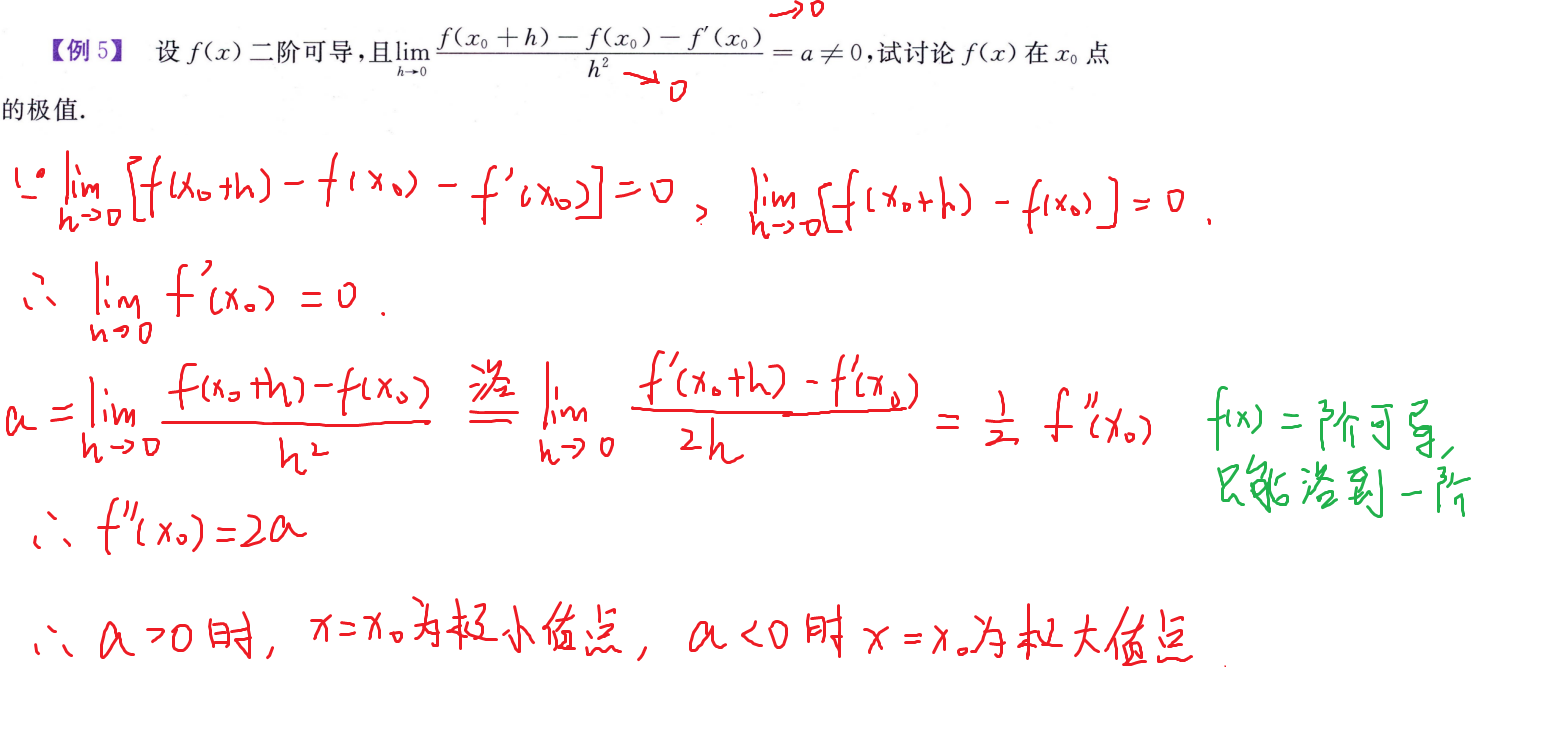 →0
【例 5】 设 f(x) 二阶可导,且lim_{h→0} (f(x₀+h)−f(x₀)−f′(x₀))/h² = a≠0,试讨论 f(x) 在 x₀ 点
→0
的极值.
∵ lim_{h→0} [f(x₀+h)−f(x₀)−f′(x₀)]=0, lim_{h→0} [f(x₀+h)−f(x₀)]=0.
∴ lim_{h→0} f′(x₀)=0.
a = lim_{h→0} (f(x₀+h)−f(x₀))/h² 洛= lim_{h→0} (f′(x₀+h)−f′(x₀))/2h = 1/2 f″(x₀) f(x)二阶可导,
只能洛到一阶
∴ f″(x₀)=2a
∴ a>0时, x=x₀为极小值点, a<0时 x=x₀为极大值点.